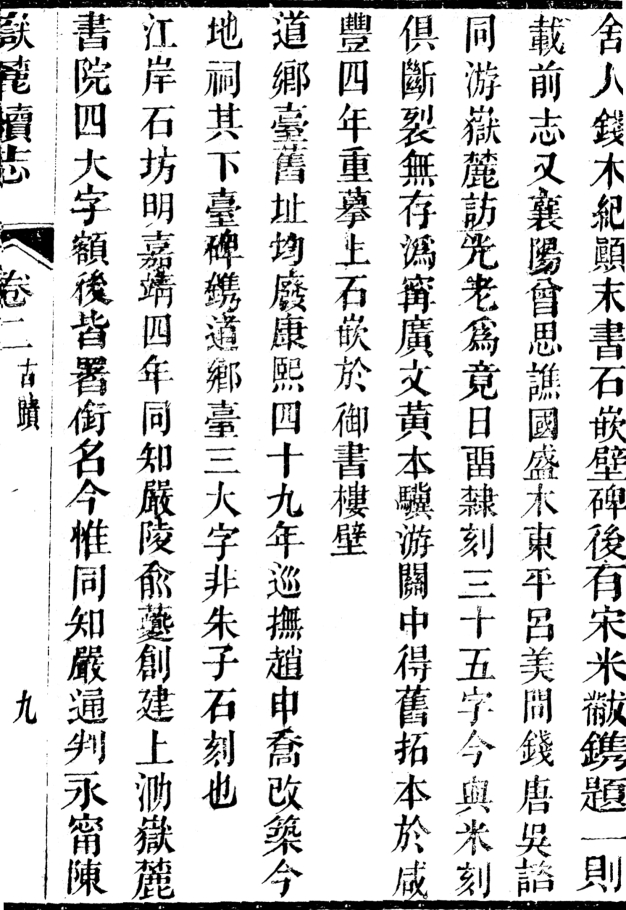 舍人錢木紀顚末書石嵌壁碑後有宋米黻鐫題一則
載前志又襄陽曾思譙國盛木東平呂美問錢唐吳誥
同游嶽麓訪先老爲竟日畱隸刻三十五字今與米刻
俱斷裂無存潙甯廣文黃本驥游關中得舊拓本於咸
豐四年重摹上石嵌於御書樓壁
道鄉臺舊址均廢康熙四十九年巡撫趙申喬改築今
地祠其下臺碑鐫道鄉臺三大字非朱子石刻也
江岸石坊明嘉靖四年同知嚴陵俞夔創建上泐嶽麓
書院四大字額後皆署銜名今惟同知嚴通判永甯陳
嶽麓續志
卷二
古蹟
九